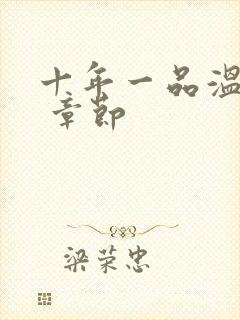 十年一品温
章节
梁荣忠